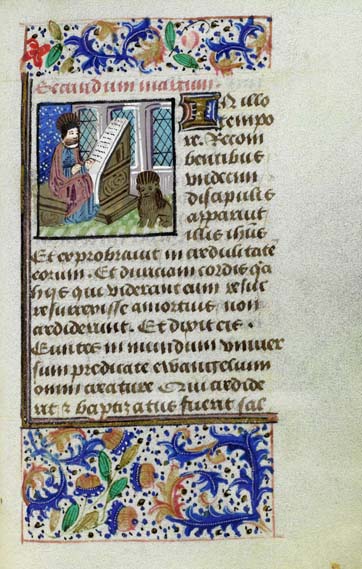 Secundum marcum.
IN illo
tempo
re. Recum
bentibus
undecim
discipulis
apparuit
illis ihus
Et exprobravit incredulitate
eorum. Et duriciam cordis q̃a
hys qui viderant eum resur
resurrexisse amortuis non
crediderunt. Et dixit eis.
Euntes in mundum univer
sum predicate ewangelium
omni creature Qui credide
rit ⁊ baptizatus fuerit sal